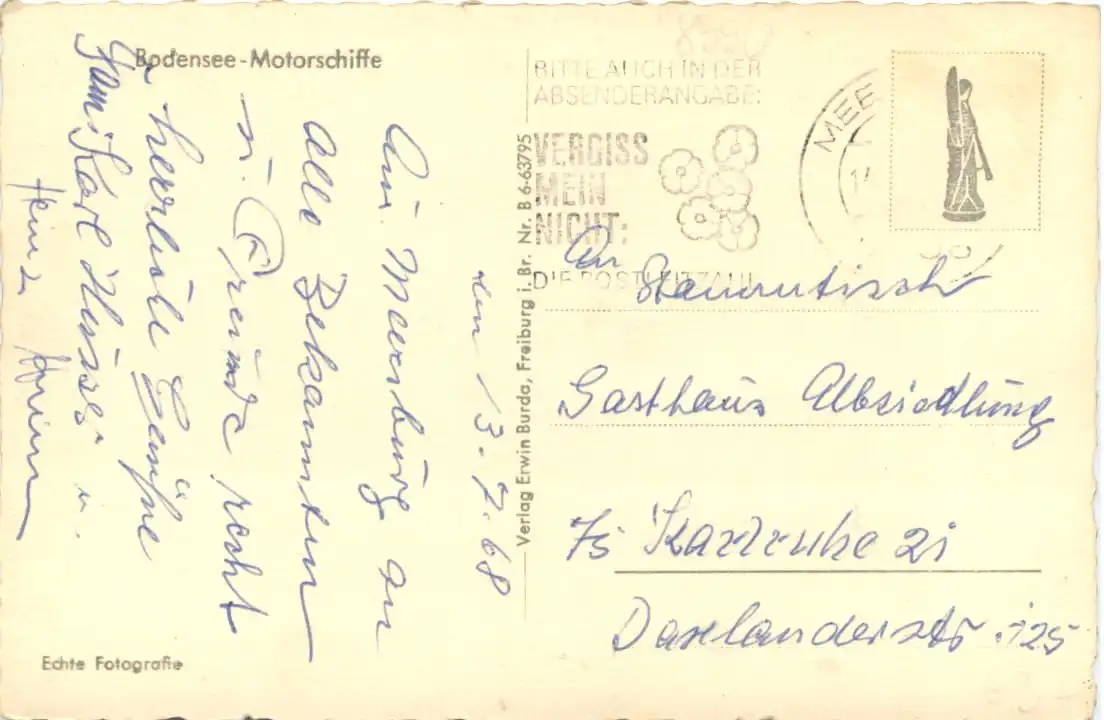 Bodensee-Motorschiffe
den 13.7.68
Aus Meersburg an
Alle Bekannten
u. Freunde recht
herrliche Grüße
Fam. Karl
u.
Heinz
Echte Fotografie
Verlag Erwin Burda, Freiburg i. Br. Nr. B 6-63795
BITTE AUCH IN DER
ABSENDERANGABE:
VERGISS
MEIN
NICHT:
DIE POSTLEITZAHL
MEE
14.
An
Stammtisch
Gasthaus Albsiedlung
75 Karlsruhe 21
Daxlanderstr. 125